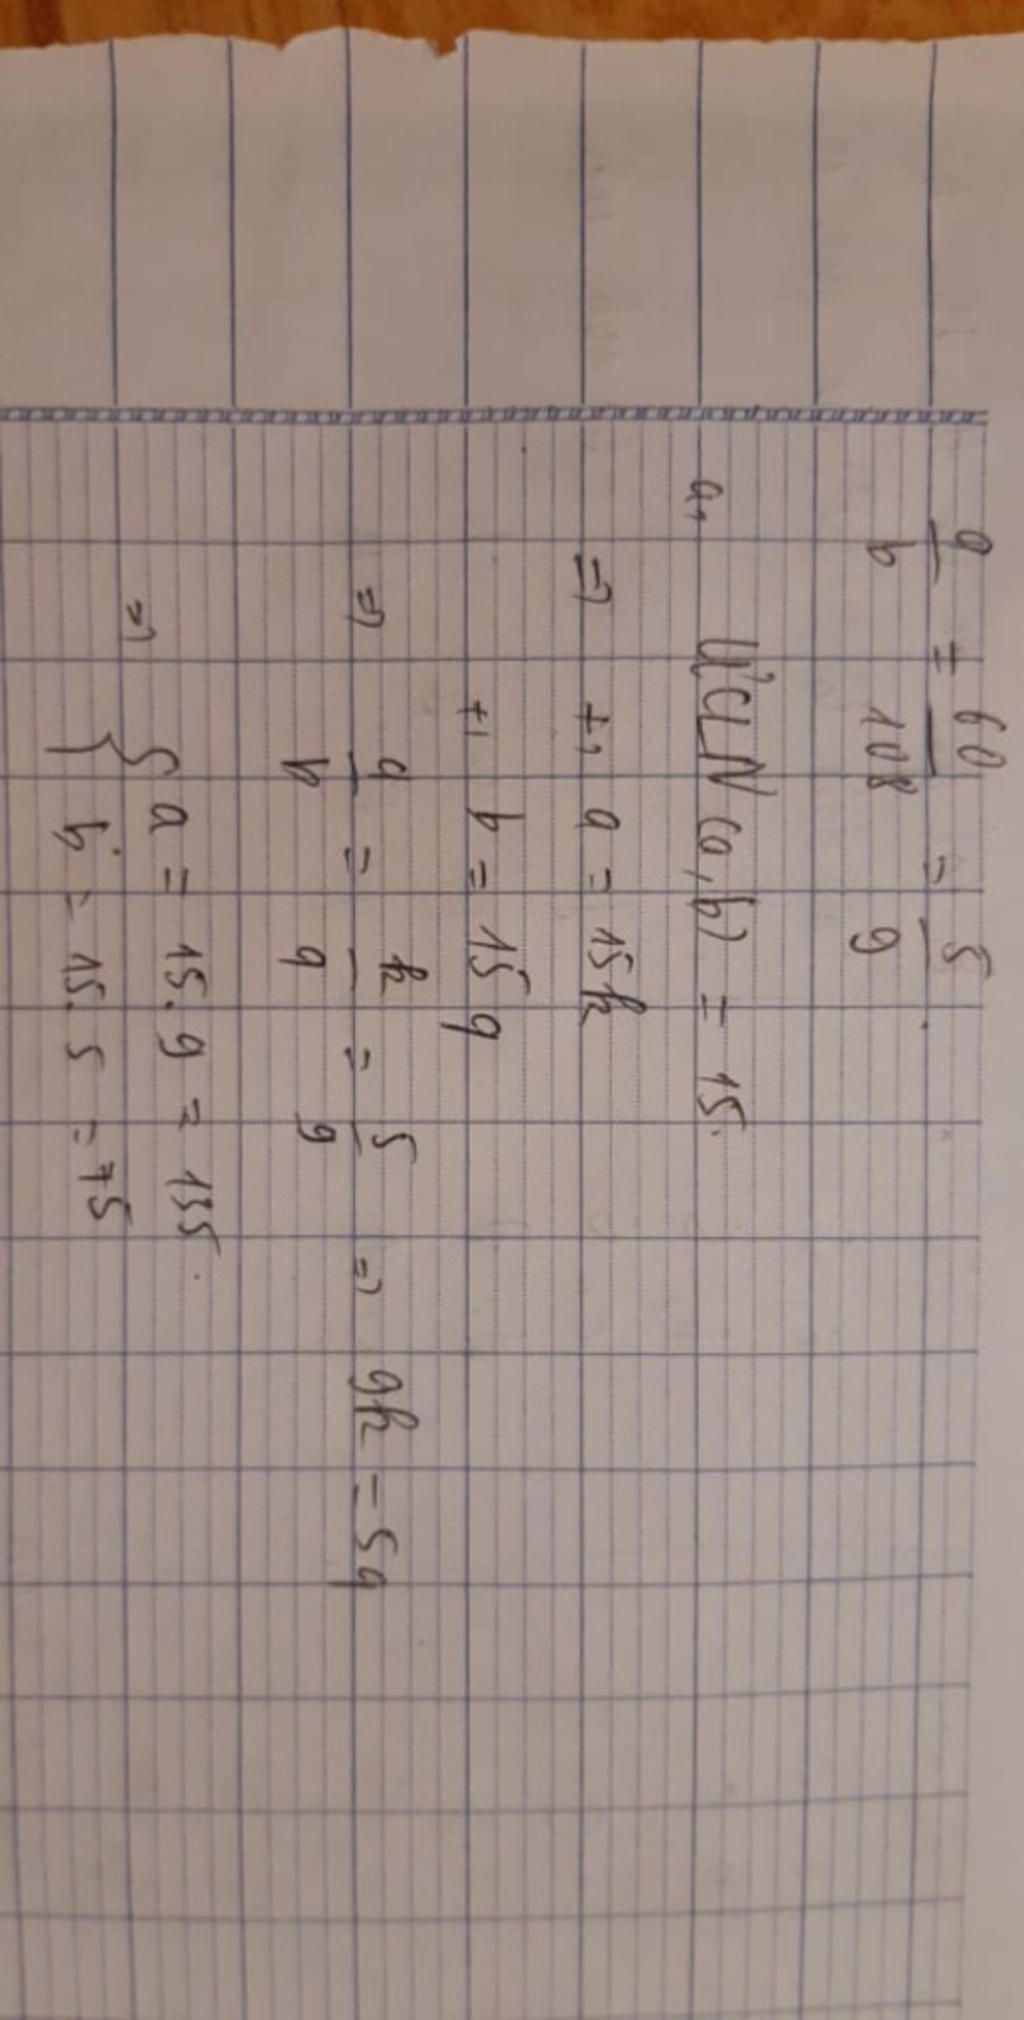 a/b = 60/108 = 5/9
a, ƯCLN (a,b) = 15.
=> +, a = 15k
+, b = 15q
=> a/b = k/q = 5/9 => 9k = 5q
=> { a = 15.9 = 135.
b = 15.5 = 75